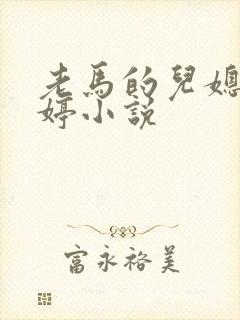 老馬的兒媳
婷小説
富永裕美